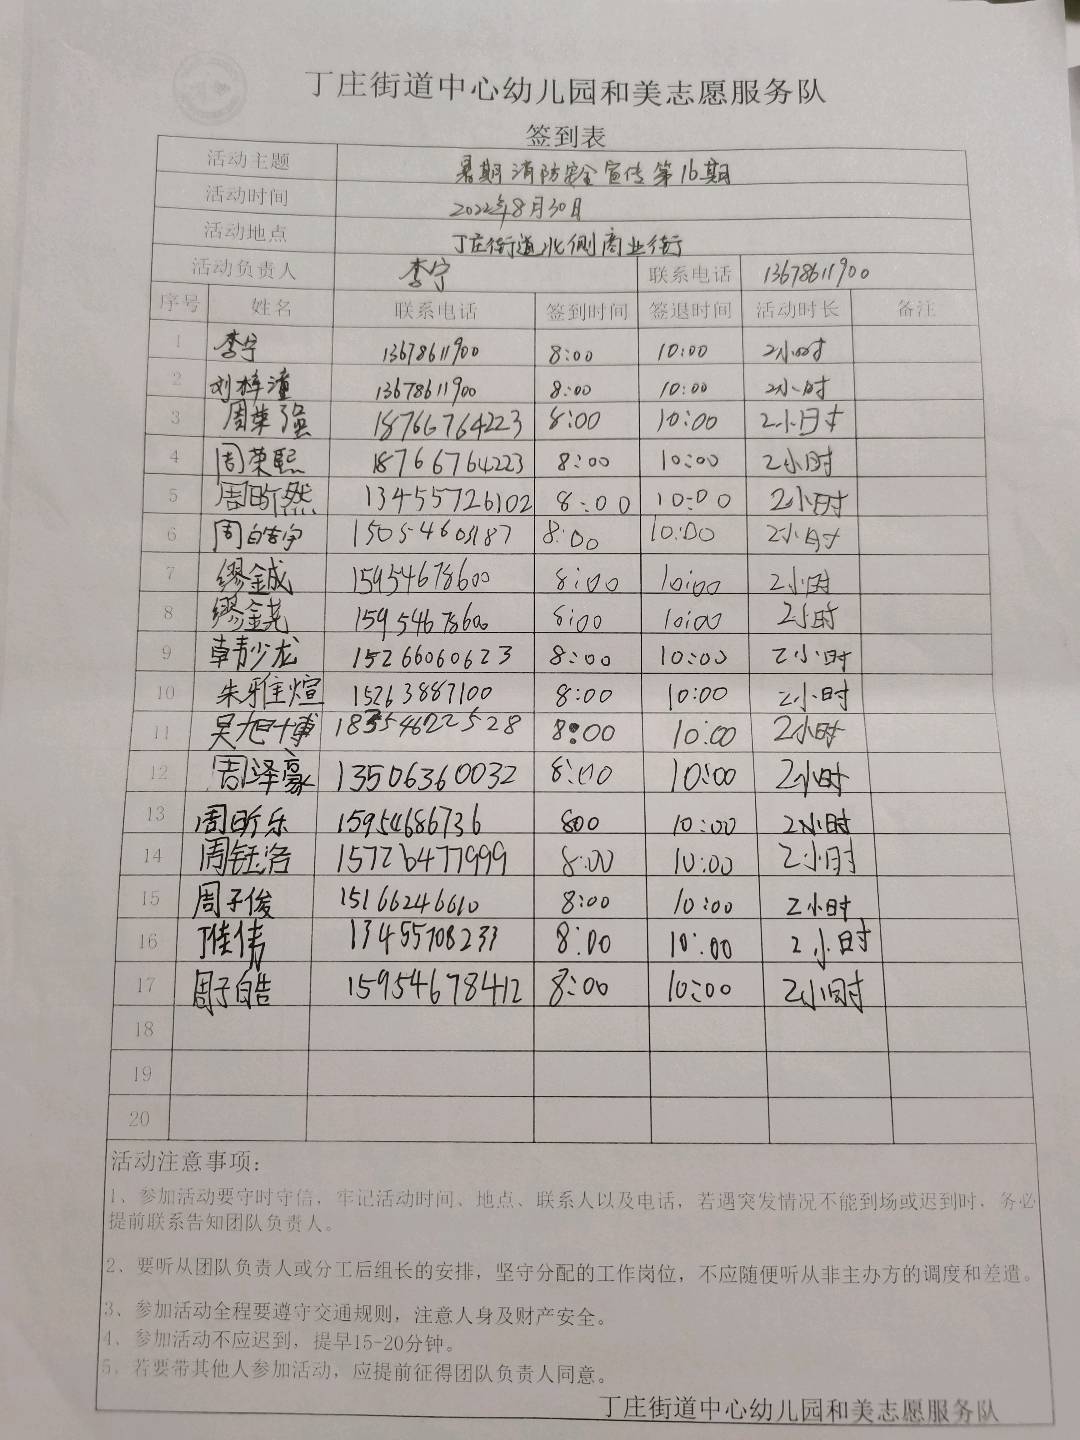 丁庄街道中心幼儿园和美志愿服务队
签到表
活动主题 暑期消防安全宣传第16期
活动时间 2022年8月30日
活动地点 丁庄街道北侧商业街
活动负责人 李宁 联系电话 13678611900
序号 姓名 联系电话 签到时间 签退时间 活动时长 备注
1 李宁 13678611900 8:00 10:00 2小时
2 刘梓潼 13678611900 8:00 10:00 2小时
3 周荣强 18766764223 8:00 10:00 2小时
4 周荣熙 18766764223 8:00 10:00 2小时
5 周昕然 13455726102 8:00 10:00 2小时
6 周皓宇 15054603187 8:00 10:00 2小时
7 缪鋮 15954678600 8:00 10:00 2小时
8 缪 15954678600 8:00 10:00 2小时
9 韩少龙 15266060623 8:00 10:00 2小时
10 朱雅煊 15263887100 8:00 10:00 2小时
11 吴旭博 18354622528 8:00 10:00 2小时
12 周泽豪 13506360032 8:00 10:00 2小时
13 周昕乐 15954686736 8:00 10:00 2小时
14 周钰洛 15726477999 8:00 10:00 2小时
15 周子俊 15166246610 8:00 10:00 2小时
16 丁佳伟 13455708233 8:00 10:00 2小时
17 周子皓 15954678412 8:00 10:00 2小时
18
19
20
活动注意事项：
1、参加活动要守时守信，牢记活动时间、地点、联系人以及电话，若遇突发情况不能到场或迟到时，务必
提前联系告知团队负责人。
2、要听从团队负责人或分工后组长的安排，坚守分配的工作岗位，不应随便听从非主办方的调度和差遣。
3、参加活动全程要遵守交通规则，注意人身及财产安全。
4、参加活动不应迟到，提早15-20分钟。
5、若要带其他人参加活动，应提前征得团队负责人同意。
丁庄街道中心幼儿园和美志愿服务队